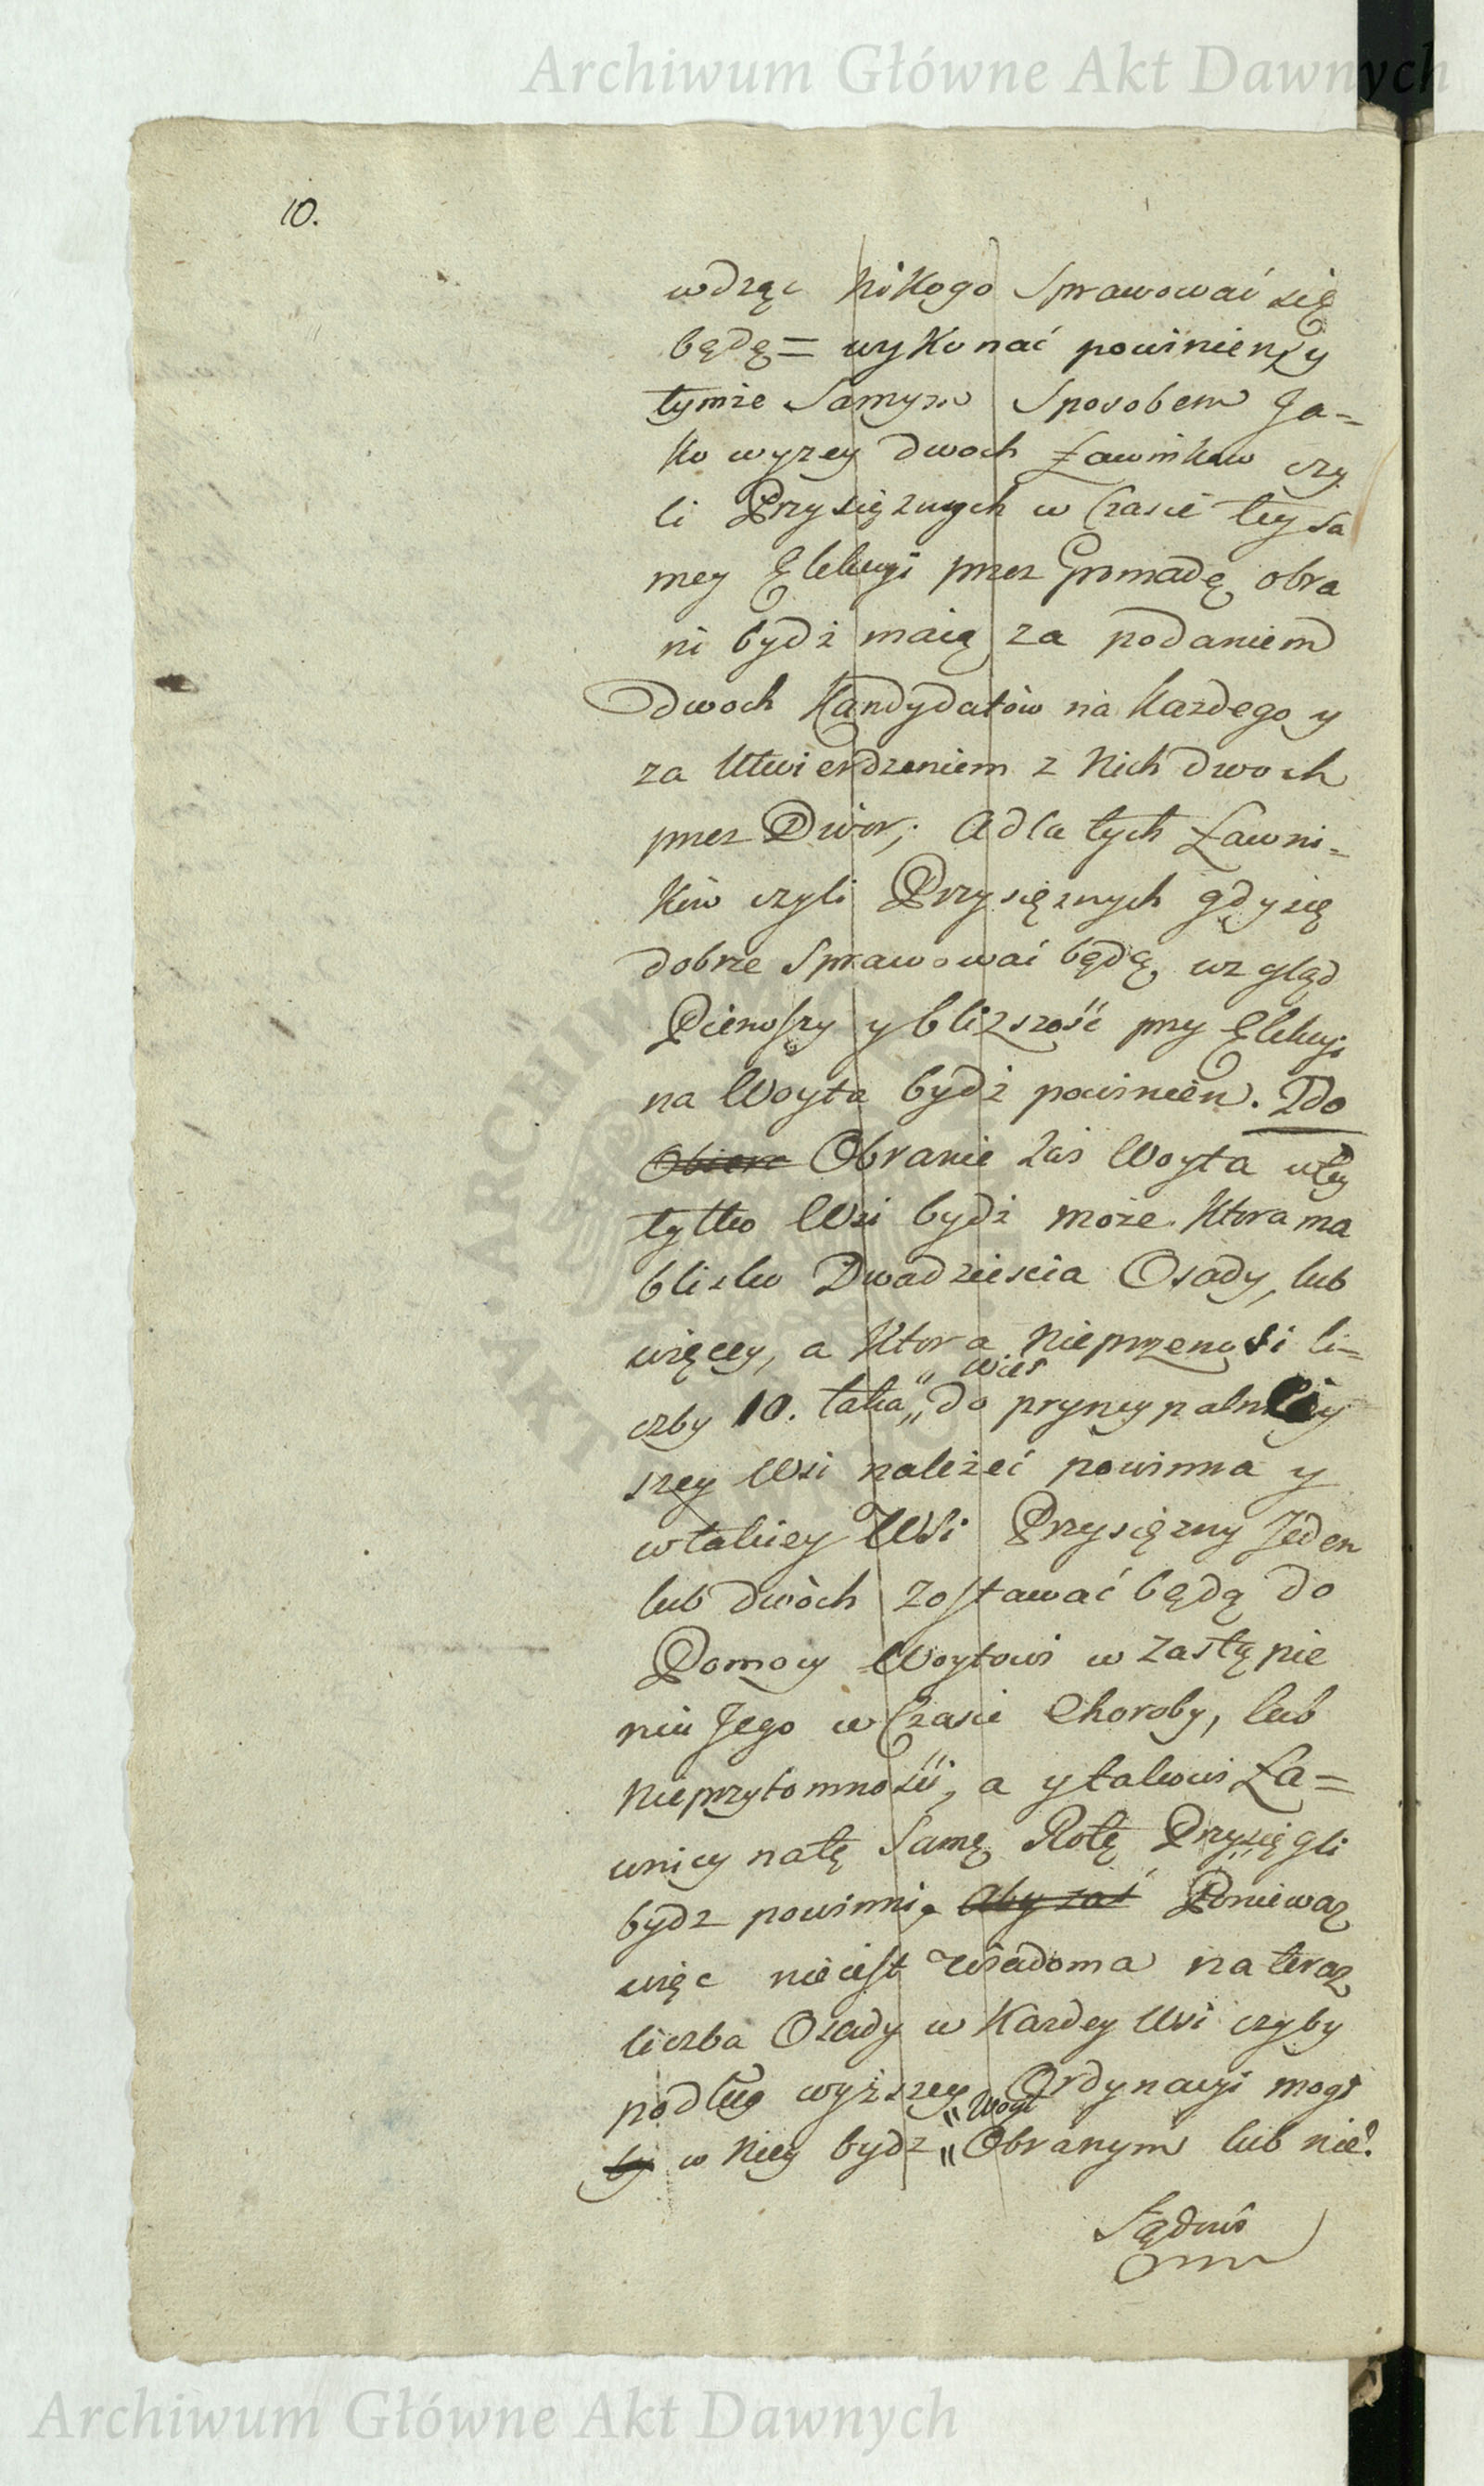 Archiwum Główne Akt Dawnych
10.
wdząc nikogo sprawować się
będę = wykonać powinien, y
tymże samym sposobem Ja=
ko wyzey dwoch Ławnikow czy
li Przysiężnych w Czasie tey sa
mey Elekcyi przez Gromadę obra
ni bydż maią za podaniem
dwoch Kandydatów na każdego y
za utwierdzeniem z nich dwoch
przez Dwór; a dla tych Ławni=
ków czyli Przysiężnych gdy się
dobrze sprawować będą wzgląd
Pierwszy y bliższość przy Elekcyi
na Woyta bydż powinien. 2do
Obiera Obranie zaś Woyta w tey
tylko Wsi bydż może ktora ma
blisko Dwadzieścia Osady, lub
więcey, a ktora nieprzenosi li=
czby 10. taka „wieś„ do pryncypalniey
szey Wsi należeć powinna y
w takiey Wsi Przysiężny Jeden
lub dwóch zostawać będą do
Pomocy Woytowi w zastępie
niu Jego w Czasie Choroby, lub
nieprzytomności, a y takowi Ła=
wnicy na tę samę Rotę Przysięgli
bydz powinni. Aby zaś Ponieważ
więc nieiest wiadoma na teraz
liczba Osady w każdey Wsi czyby
podług wyższey Ordynacyi mogł
by w niey bydz „Woyt„ Obranym lub nie?
ARCHIWUM GŁÓWNE AKT DAWNYCH
Archiwum Główne Akt Dawnych